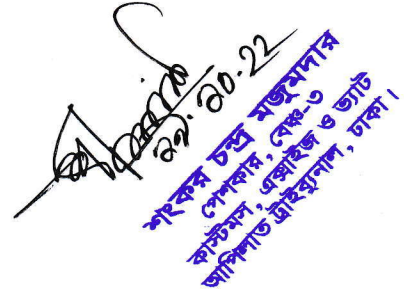 ২৯.১০.22
শংকর চন্দ্র মজুমদার
পেশকার, বেঞ্চ-৩
কাস্টমস, এক্সাইজ ও ভ্যাট
আপিলাত ট্রাইব্যুনাল, ঢাকা।